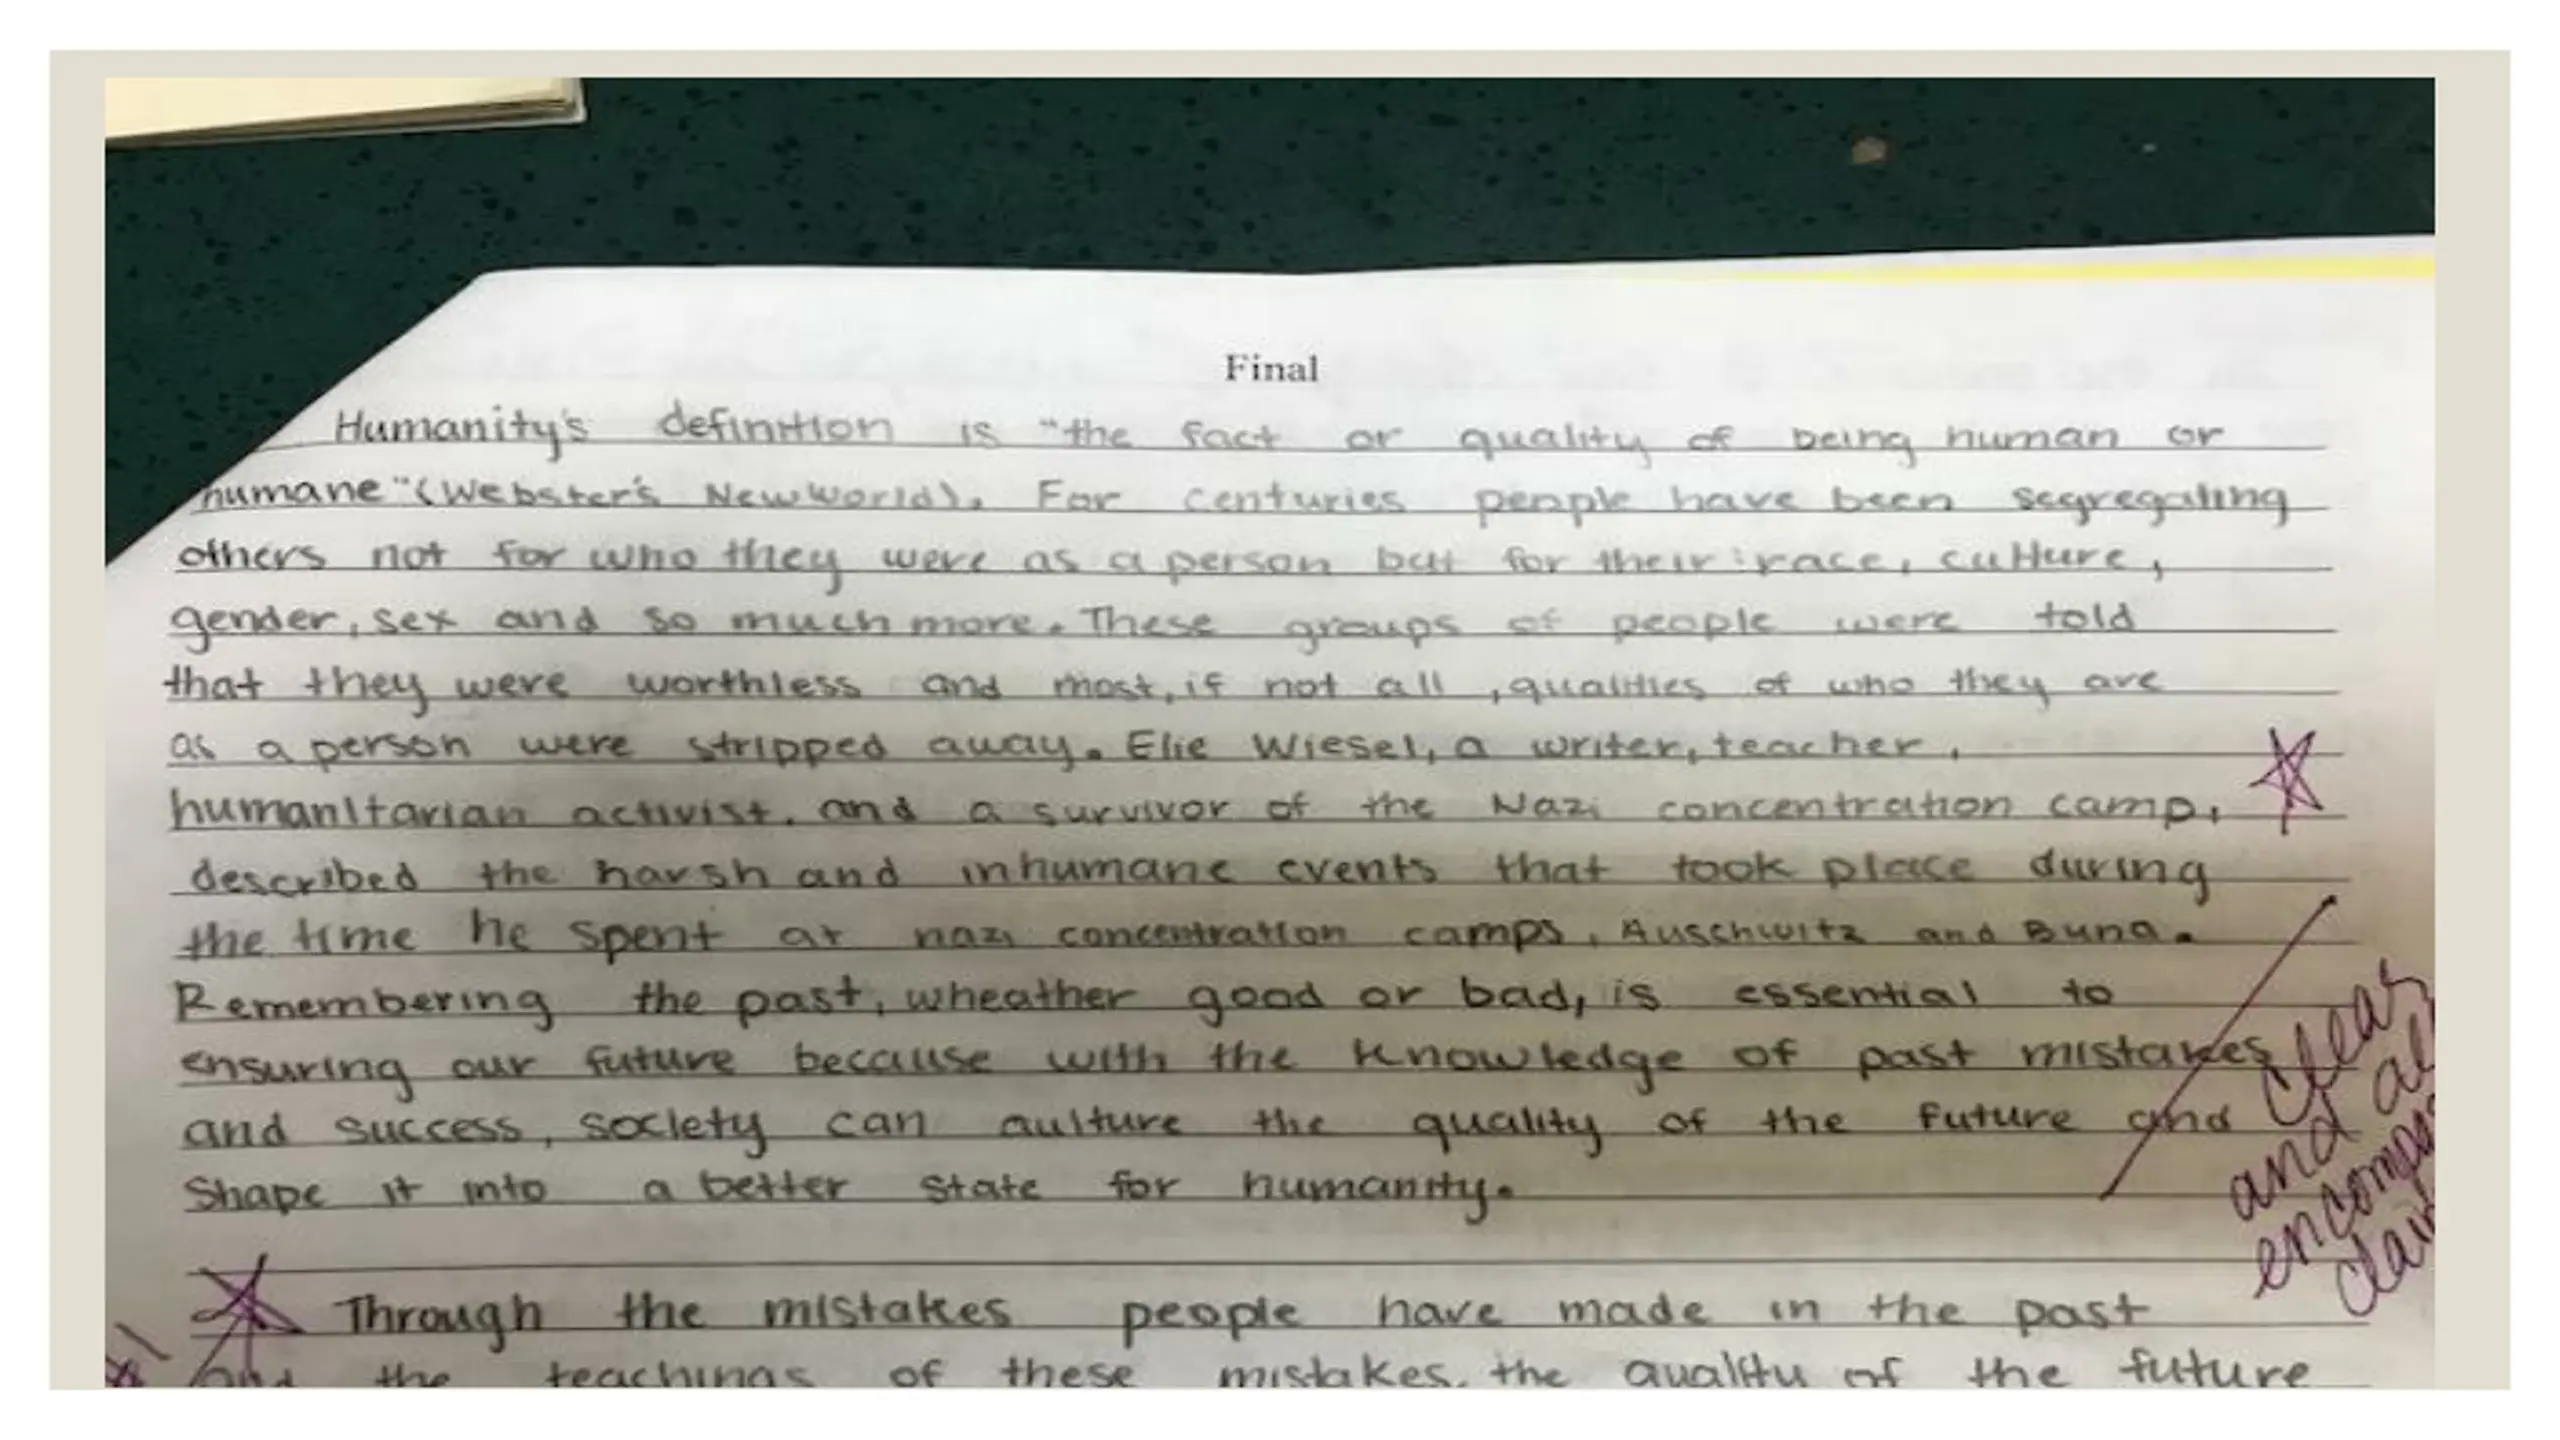 Final
Humanity's definition is "the fact or quality of being human or
humane" (Webster's New World). For centuries people have been segregating
others not for who they were as a person but for their race, culture,
gender, sex and so much more. These groups of people were told
that they were worthless and most, if not all, qualities of who they are
as a person were stripped away. Elie Wiesel, a writer, teacher,
humanitarian activist, and a survivor of the Nazi concentration camp,
described the harsh and inhumane events that took place during
the time he spent at nazi concentration camps, Auschwitz and Buna.
Remembering the past, wheather good or bad, is essential to
ensuring our future because with the knowledge of past mistakes
and success, society can aulture the quality of the future and
shape it into a better state for humanity.
Clear
and all
encompass
claim
Through the mistakes people have made in the past
#1
and the teachings of these mistakes, the quality of the future